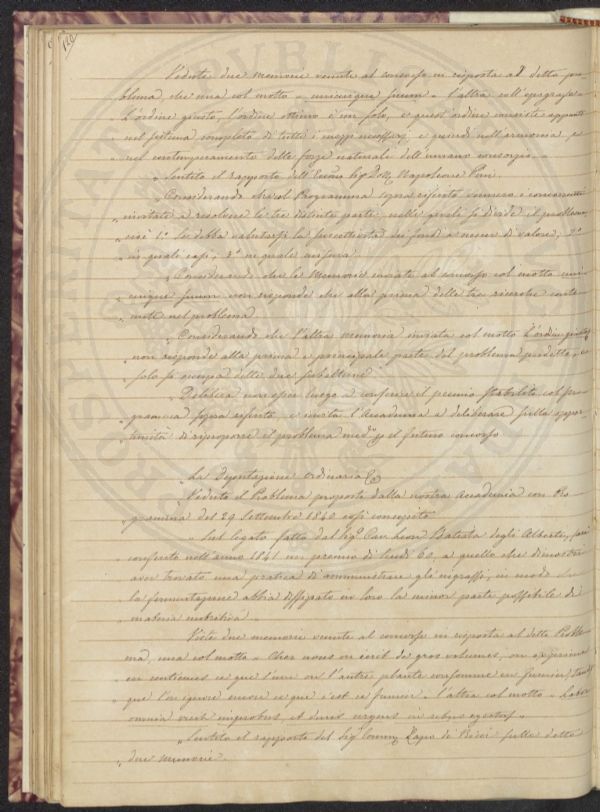 120
Vedute due memorie venute al concorso in risposta al detto pro-
„ blema, che una col motto „ unicuique suum „ l'altra coll'epigrafe „
„ L'ordine giusto, l'ordine ottimo è un solo, e quest'ordine consiste appunto
„ nel sistema completo di tutti i mezzi necessarj e quindi nell'armonia, e
„ nel contemperamento delle forze naturali dell'umano consorzio „
„ Sentito il rapporto dell'Eccmo Sig Dott. Napoleone Pini.
„ Considerando che col Programma sopra riferito vennero i concorrenti
„ invitati a risolvere le tre distinte parti, nelle quali si divide il problema,
„ cioè 1° Se debba valutarsi la suscettività dei fondi a nesun di valore, 2°
„ in quali casi, 3° in quale misura.
„ Considerando che la Memoria inviata al concorso col motto uni-
„ cuique suum non risponde che alla prima delle tre ricerche conte-
„ nute nel problema.
„ Considerando che l'altra memoria inviata col motto L'ordine giusto
„ non risponde alla prima e principale parte del problema predetto, e
„ solo si occupa delle due subalterne
„ Delibera non esser luogo a conferire il premio stabilito col pro-
„ gramma sopra esposto, e invita l'Accademia a deliberare sulla oppor-
„ tunità di riproporre il problema medmo pel futuro concorso
„ La Deputazione Ordinaria
„ Veduto il Problema proposto dalla nostra Accademia con Pro-
„ gramma del 29 Settembre 1840 così concepito
„ Sul legato fatto dal Sigr Cav. Leon Batista degli Alberti, sarà
„ conferto nell'anno 1841 un premio di scudi 60 a quello che dimostri
„ aver trovato una pratica di amministrare gl'ingrassi, in modo che
„ la fermentazione abbia dissipato in loro la minor parte possibile di
„ materia nutritiva.
„ Viste due memorie venute al concorso in risposta al detto Proble-
„ ma, una col motto „ Chez nous on écrit de gros volumes, on expérimente
„ en centiemes ce que l'une ou l'autre plante consomme en fumier, tandis
„ que l'on ignore encore ce que c'est ce fumier „ l'altra col motto „ Labor
„ omnia vincit improbus, et duris urgens in rebus egestas „
„ Sentito il rapporto del Sig Comm. Lapo de Ricci sulle dette
„ due memorie.